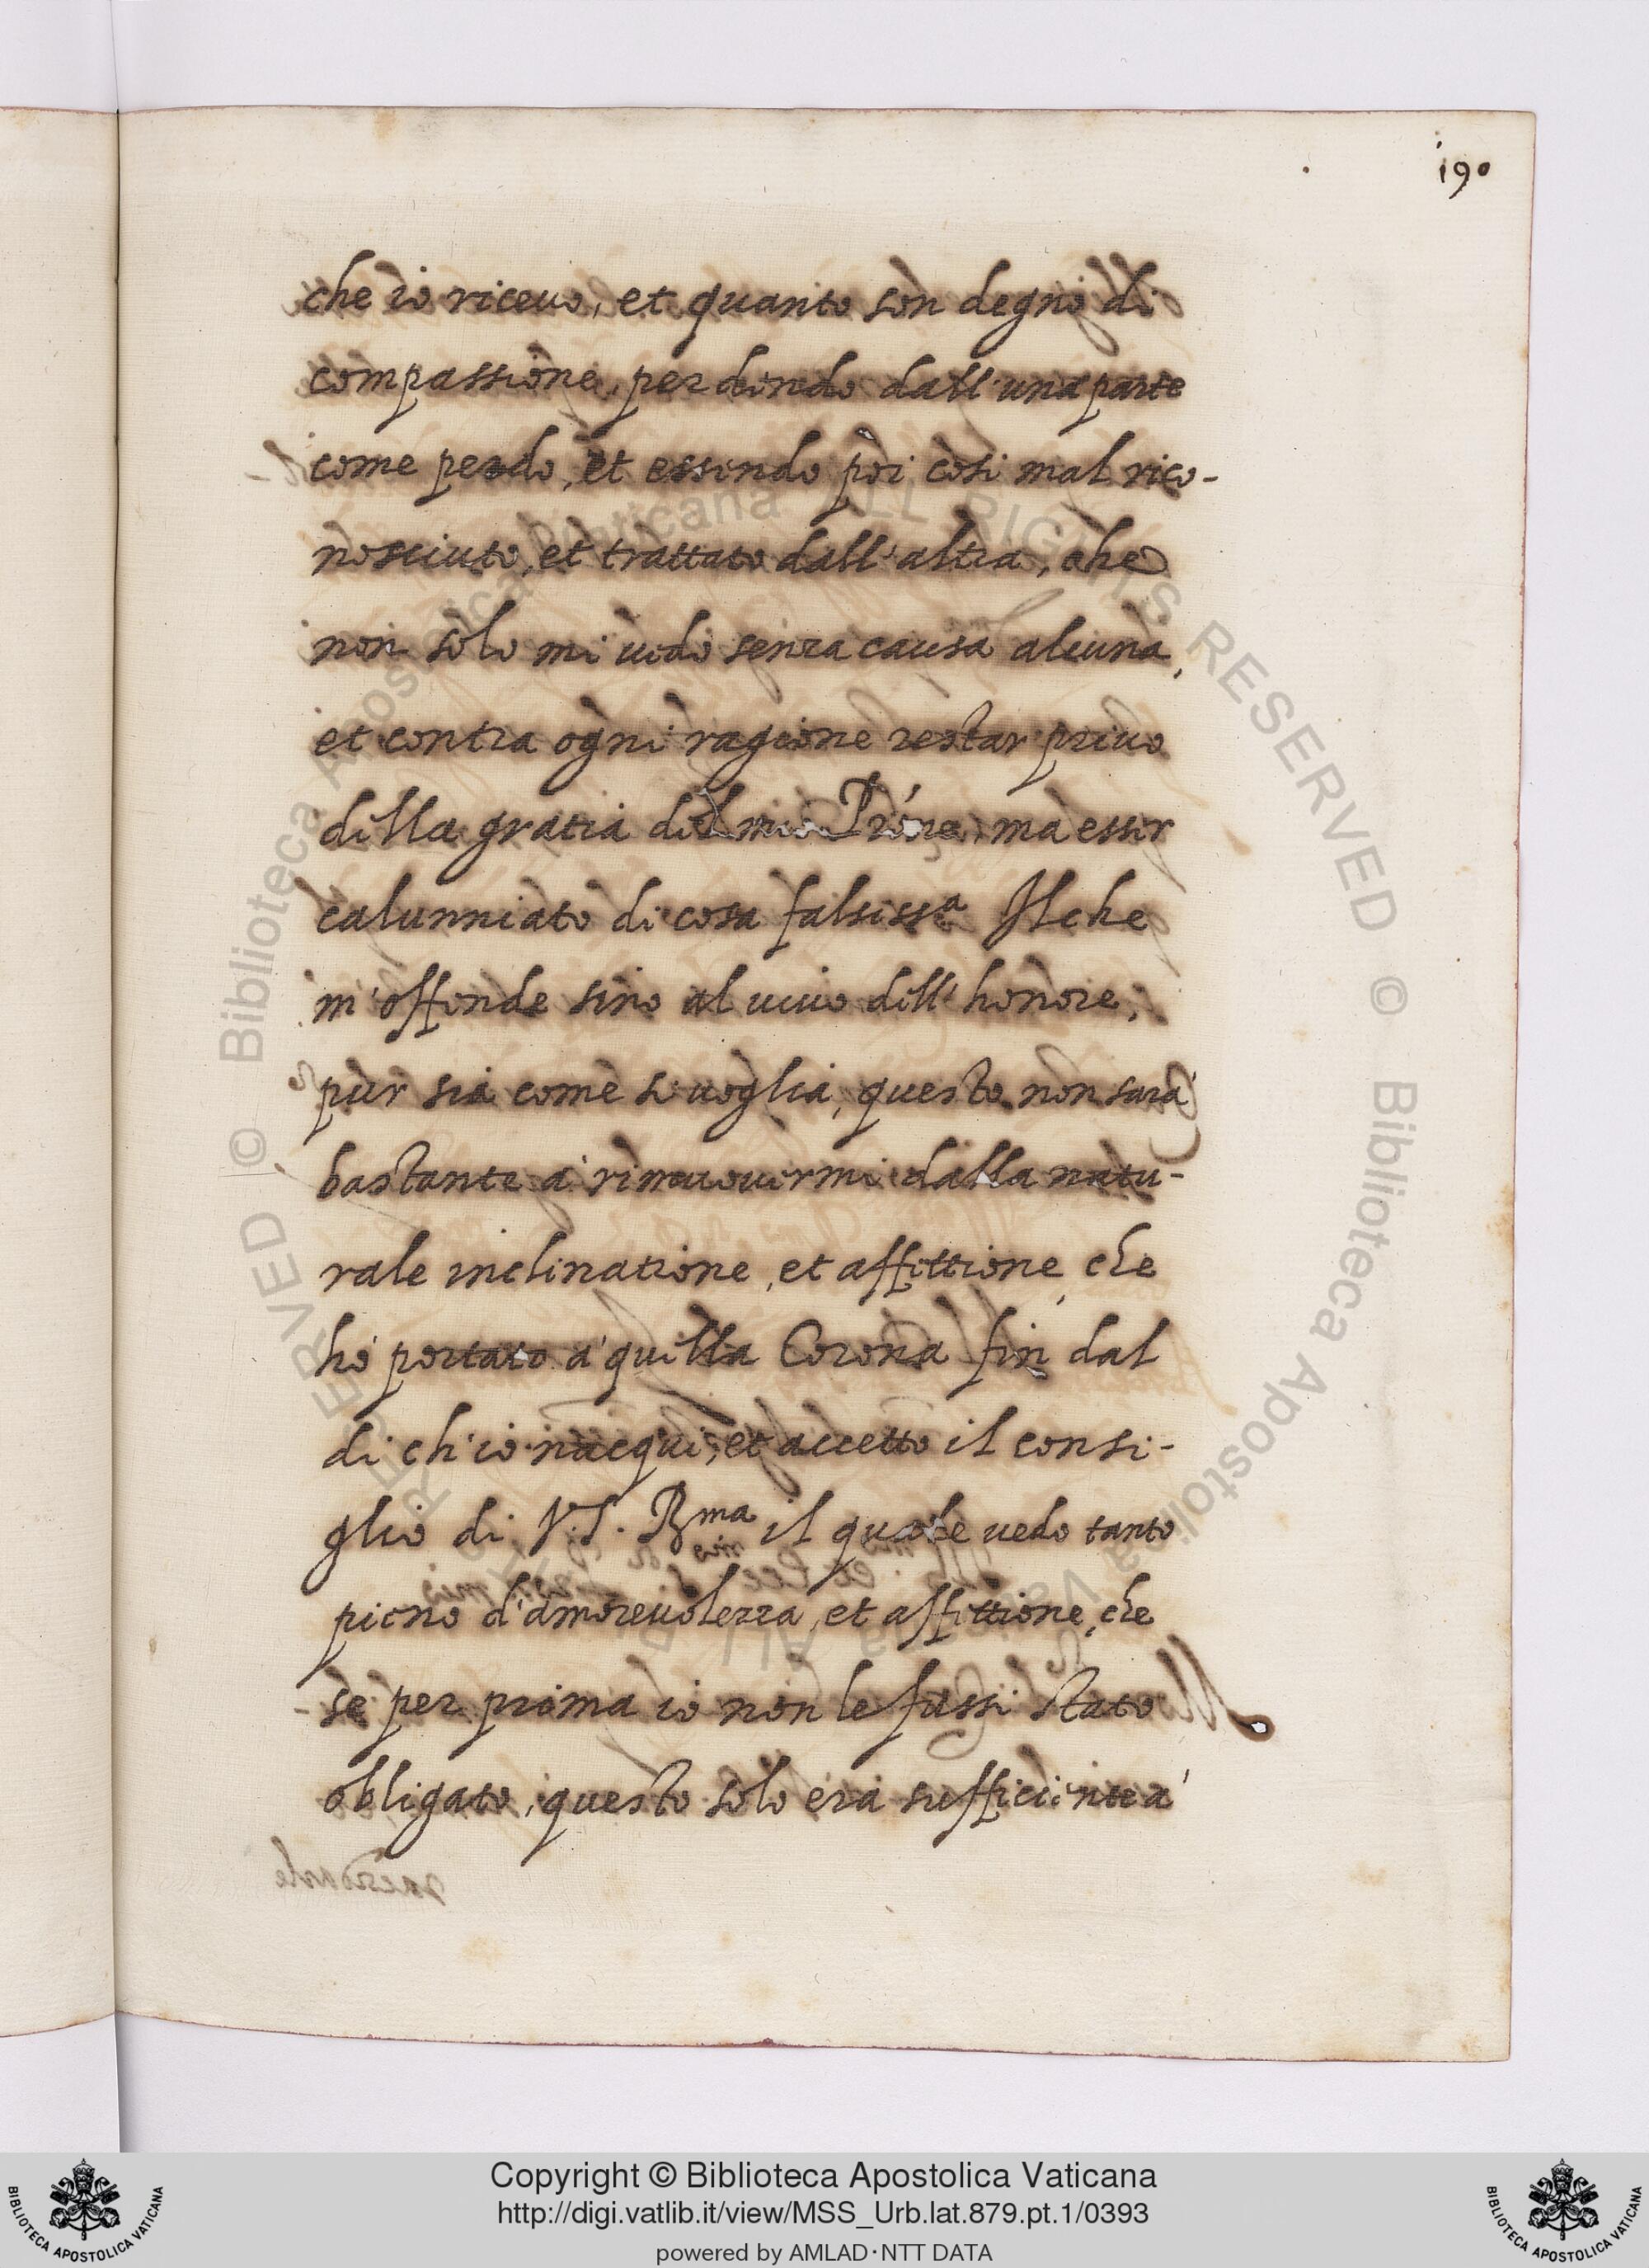 190
che io riceuo, et quanto son degno di
compassione, perdendo dall'una parte
come perdo, et essendo poi cosi mal rico-
nosciuto, et trattato dall'altra, che
non solo mi uedo senza causa alcuna,
et contra ogni ragione restar priuo
della gratia del mio Prine, ma esser
calunniato di cosa falsissa Ilche
m'offende sino al uiuo dell'honore,
pur sia come si uoglia, questo non sarà
bastante à rimouermi dalla natu-
rale inclinatione, et affettione, che
hò portato à quella Corona fin dal
di ch'io nacqui, et accetto il consi-
glio di V.S. Rma il quale uedo tanto
pieno d'amoreuolezza, et affettione, che
se per prima io non le fussi stato
obligato, questo solo era sufficiente à
© Biblioteca Apostolica Vaticana ALL RIGHTS RESERVED
© Biblioteca Apostolica Vaticana ALL RIGHTS RESERVED
BIBLIOTECA APOSTOLICA VATICANA
Copyright © Biblioteca Apostolica Vaticana
http://digi.vatlib.it/view/MSS_Urb.lat.879.pt.1/0393
powered by AMLAD·NTT DATA
BIBLIOTECA APOSTOLICA VATICANA